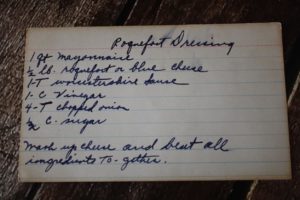 Roquefort Dressing
1 qt mayonnaise
½ lb. roquefort or blue cheese
1-T worcestershire sauce
1-C Vinegar
4-T chopped onion
½ C. sugar
Mash up cheese and beat all
ingredients to-gether.